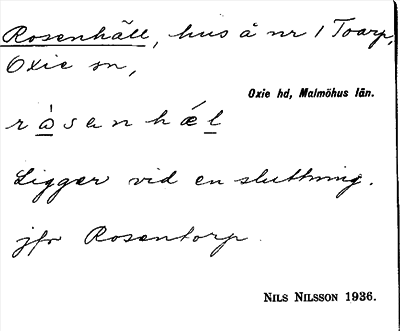 Rosenhäll, hus å nr 1 Toarp,
Oxie sn,
Oxie hd, Malmöhus län.
r ò s a n h ǽ l
Ligger vid en sluttning.
jfr Rosentorp.
Nils Nilsson 1936.